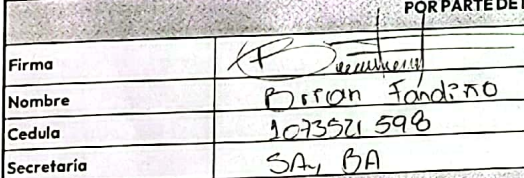 POR PARTE DE
Firma
Nombre Brian Fandiño
Cedula 1073521598
Secretaría SA, BA